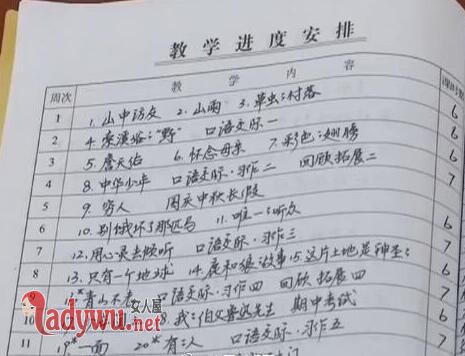 教学进度安排
周次 教学内容 课时数
1 1.山中访友 2.山雨 3.草虫的村落 6
2 4.索溪峪的“野” 口语交际一 6
3 5.詹天佑 6.怀念母亲 7.彩色的翅膀 6
4 8.中华少年 口语交际·习作二 回顾拓展二 7
5 9.穷人 国庆中秋长假
6 10.别饿坏了那匹马 11.唯一的听众 6
7 12.用心灵去倾听 口语交际·习作三
8 13.只有一个地球 14.鹿和狼的故事 15.这片土地是神圣的
9 16*青山不老 口语交际·习作四 回顾拓展四
10 我的伯父鲁迅先生 期中考试
11 19*一面 20*有的人 口语交际·习作五 7
女人屋
Ladywu.com